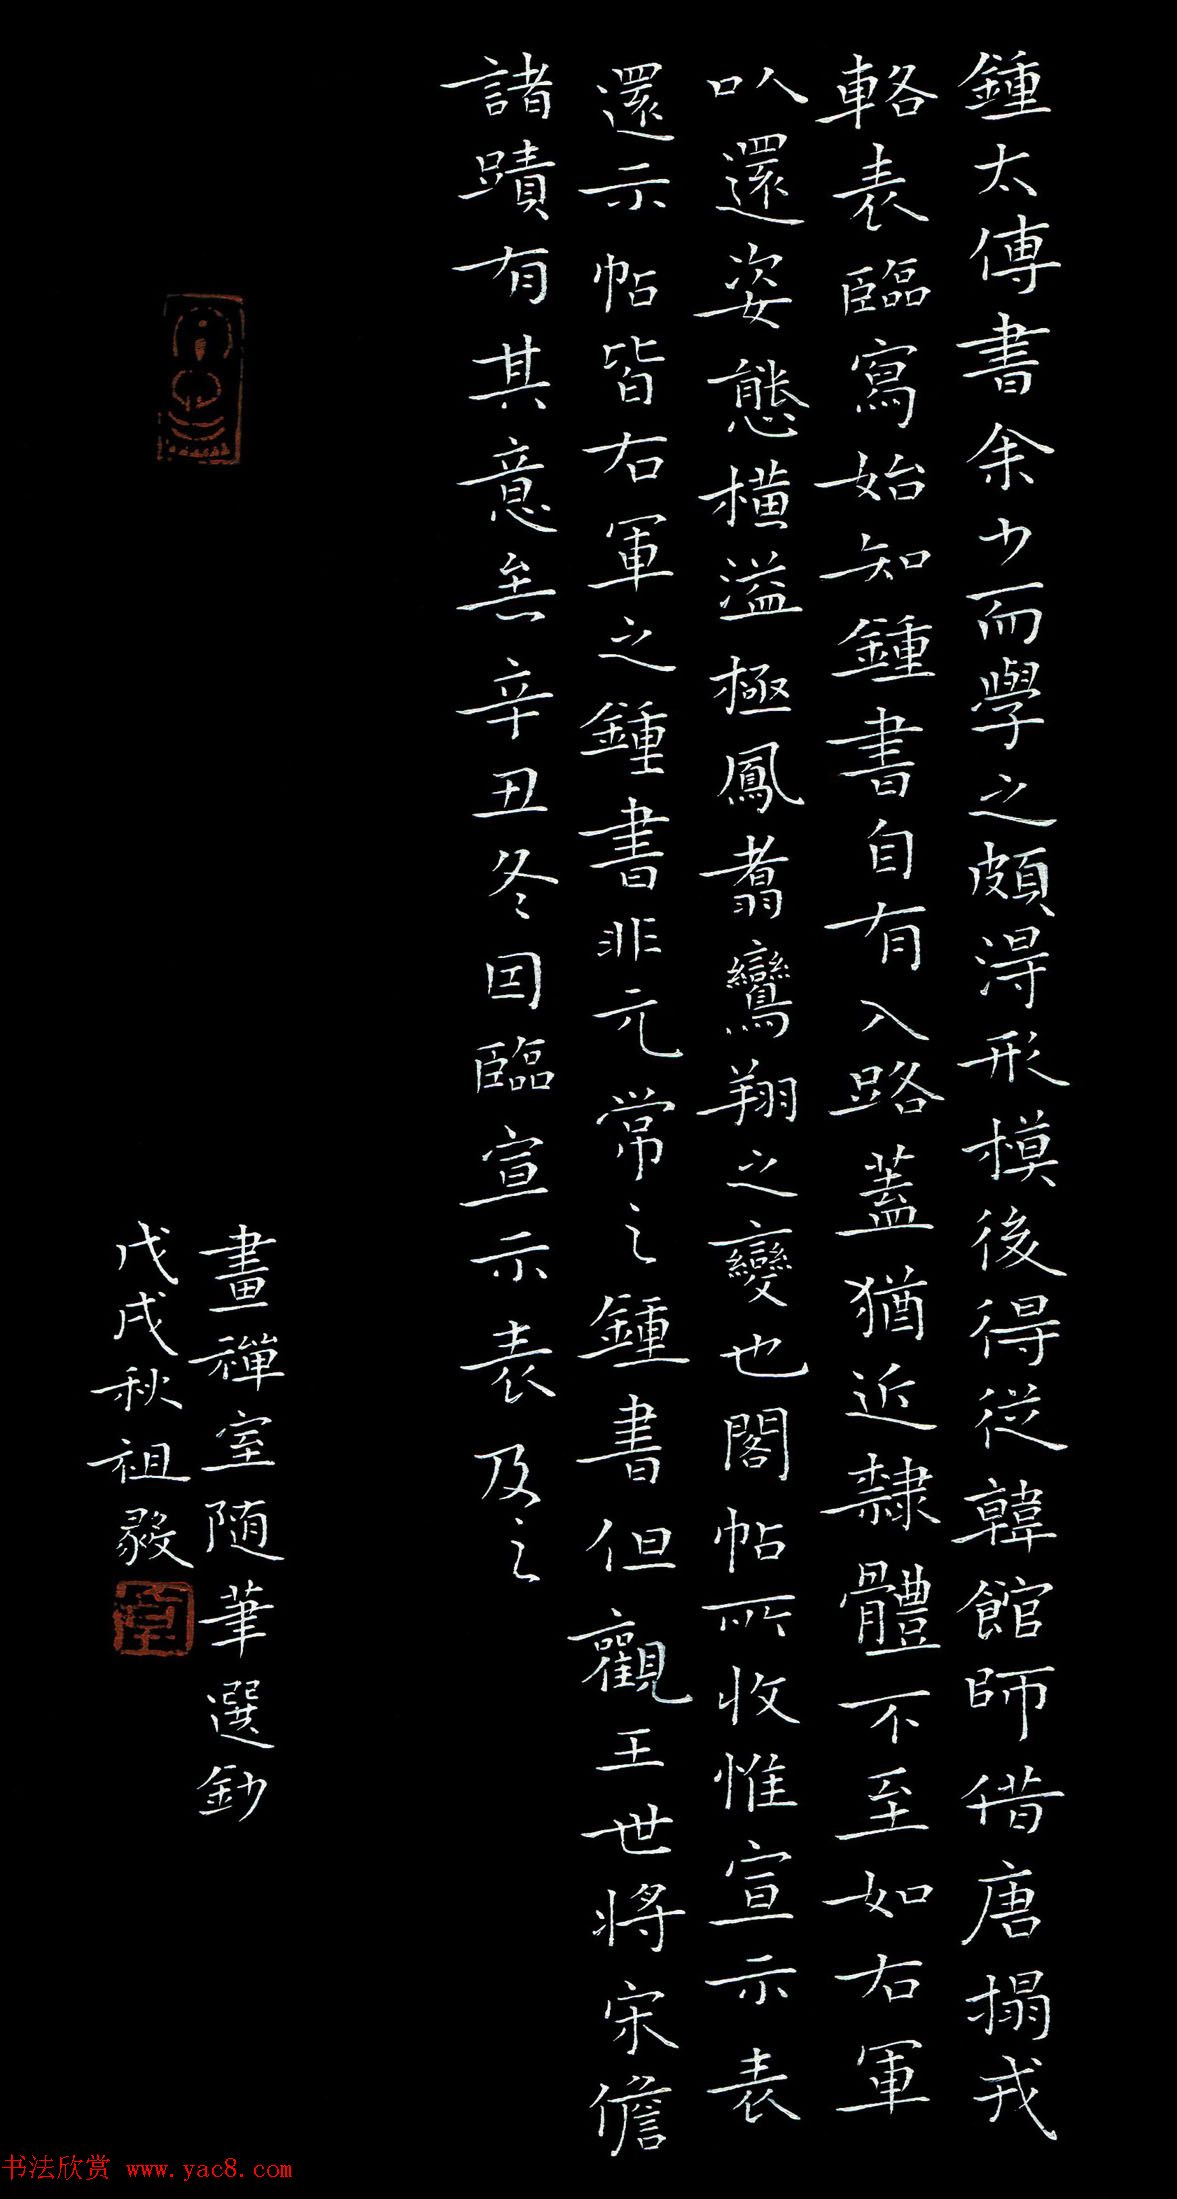 鍾太傅書余少而學之頗淂形模後得從韓館師借唐搨戎
輅表臨寫始知鍾書自有入路蓋猶近隸體不至如右軍
以還姿態橫溢極鳳翥鸞翔之變也閣帖所收惟宣示表
還示帖皆右軍之鍾書非元常之鍾書但觀王世將宋儋
諸蹟有其意矣辛丑冬因臨宣示表及之
畫禪室随筆選鈔
戊戌秋祖毅
书法欣赏 www.yac8.com